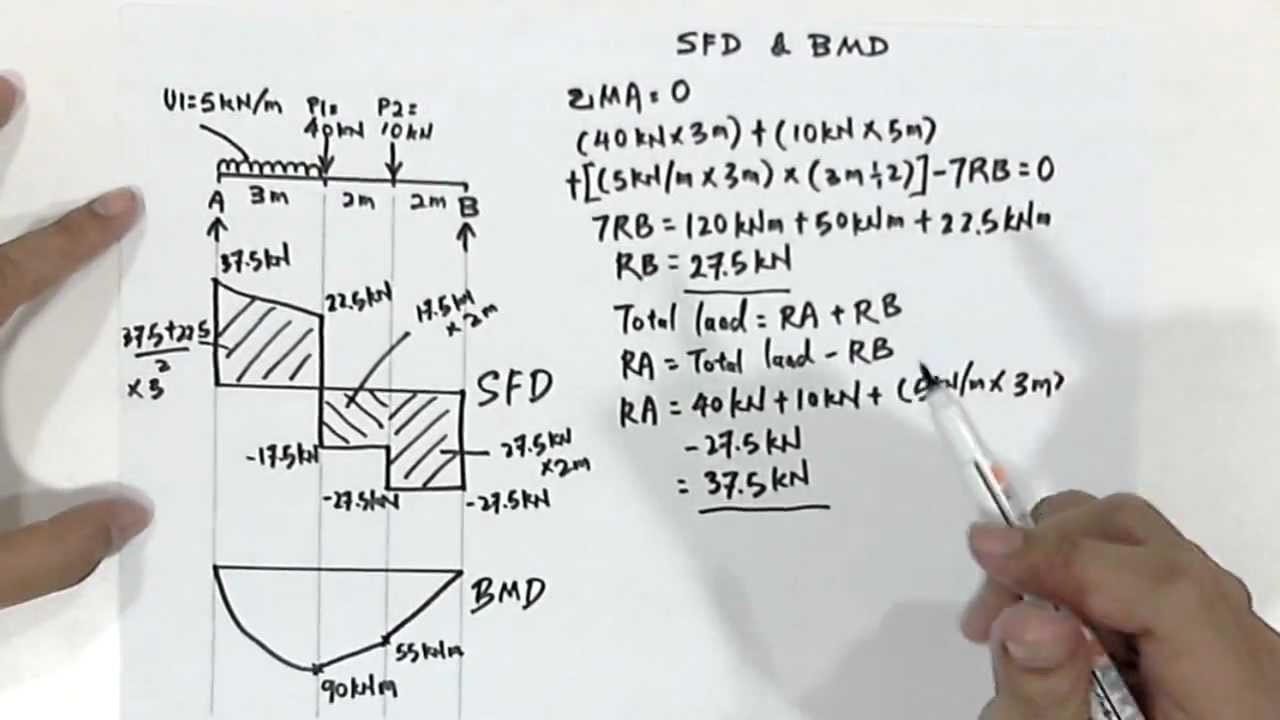 SFD & BMD
U1=5kN/m
P1=
40kN
P2=
10kN
A 3m 2m 2m B
37.5kN
22.5kN
17.5kN
×2m
37.5+22.5
2
×3
SFD
-17.5kN
27.5kN
×2m
-27.5kN
-27.5kN
BMD
55kNm
90kNm
ΣMA=0
(40kN×3m)+(10kN×5m)
+[(5kN/m×3m)×(3m÷2)]-7RB=0
7RB=120kNm+50kNm+22.5kNm
RB=27.5kN
Total load=RA+RB
RA=Total load-RB
RA=40kN+10kN+(5kN/m×3m)
-27.5kN
=37.5kN